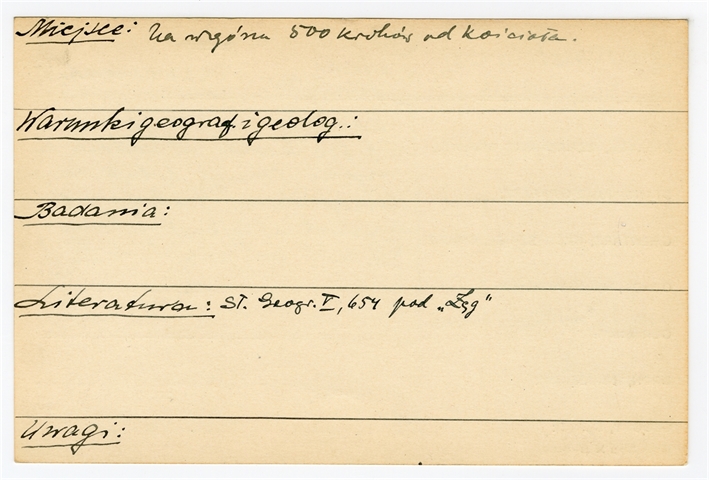 Miejsce: Na wzgórzu 500 kroków od kościoła.
Warunki geograf. i geolog.:
Badania:
Literatura: Sł. Geogr. V, 654 pod „Łęg"
Uwagi: